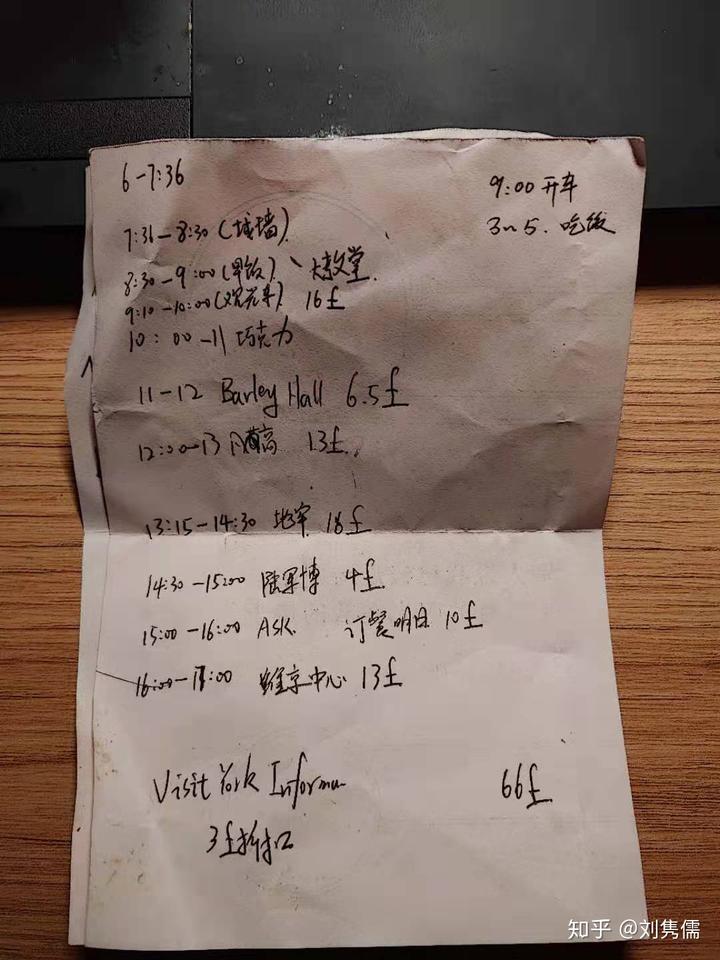 6-7:36
9:00 开车
7:36-8:30 (城墙)
3~5. 吃饭
8:30-9:00 (早饭)、大教堂.
9:10-10:00 (观光车) 16£
10:00-11 巧克力
11-12 Barley Hall 6.5£
12:00-13 13£.
13:15-14:30 地牢 18£
14:30-15:00 陆军博 4£.
15:00-16:00 ASK. 订餐明日 10£
16:00-17:00 维京中心 13£
Visit York Informa
66£
3£折扣
知乎 @刘隽儒